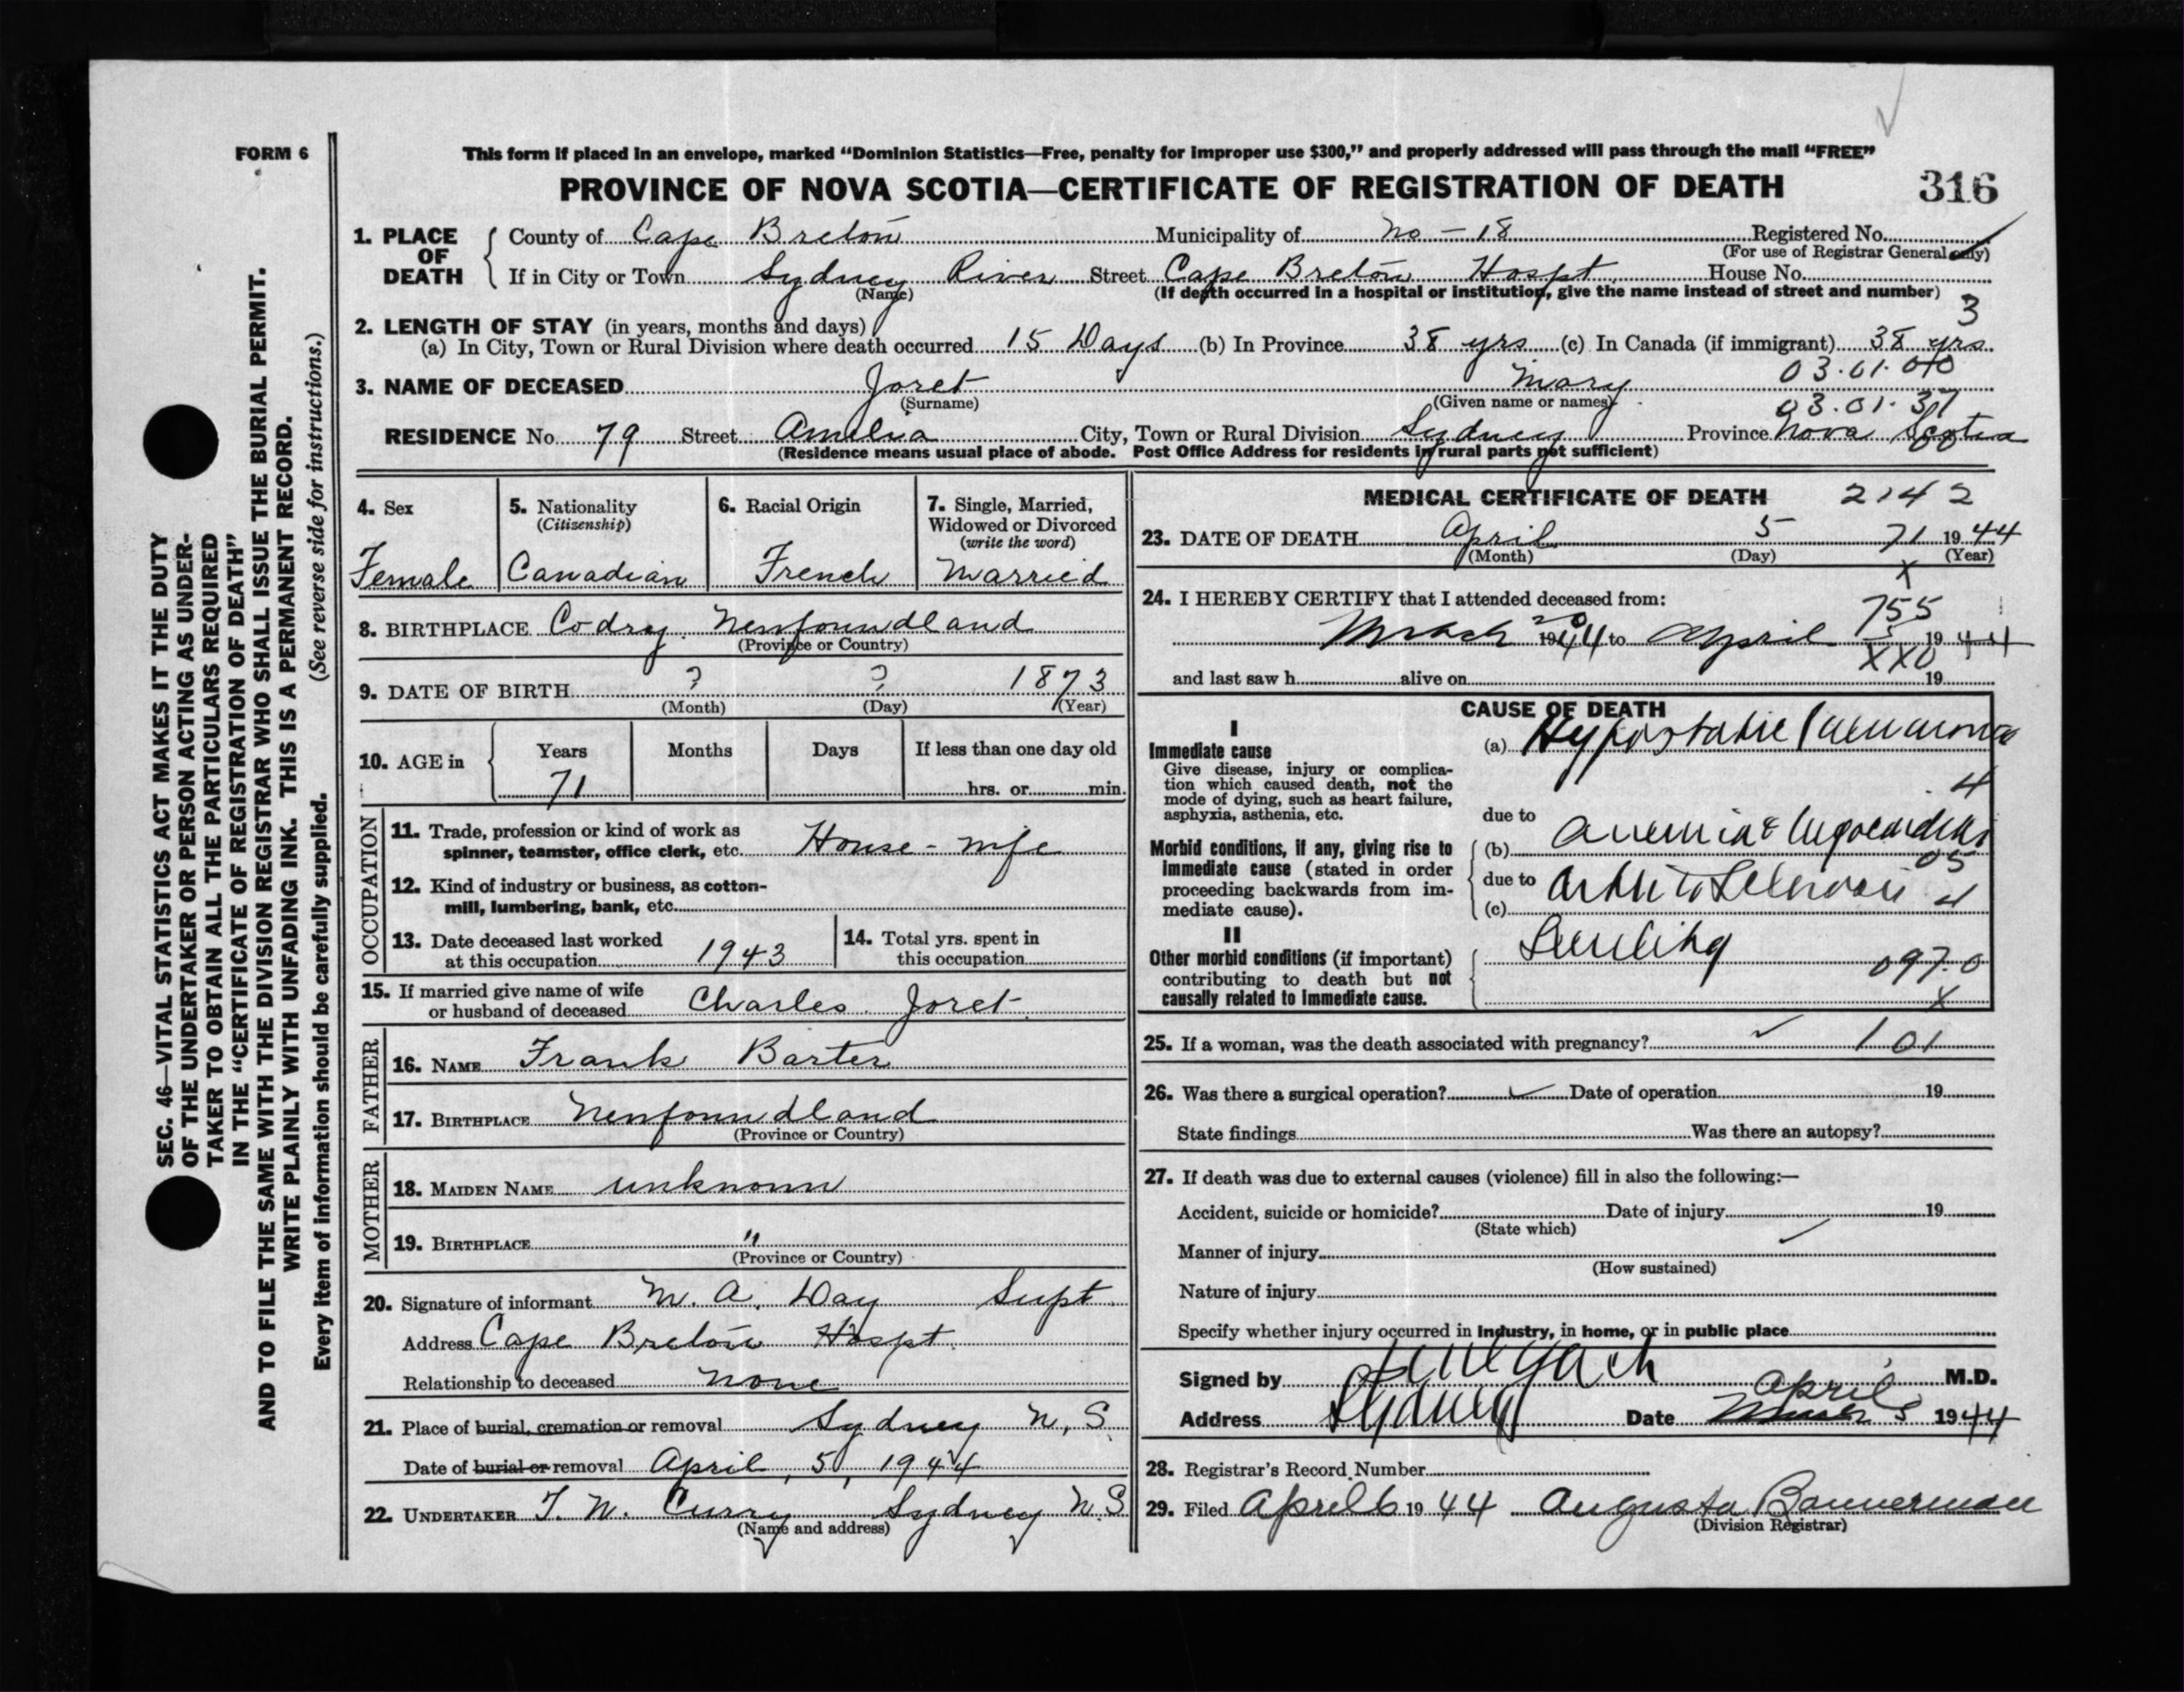 FORM 6
This form if placed in an envelope, marked “Dominion Statistics—Free, penalty for improper use $300,” and properly addressed will pass through the mail “FREE”
PROVINCE OF NOVA SCOTIA—CERTIFICATE OF REGISTRATION OF DEATH 316
1. PLACE OF DEATH
County of Cape Breton Municipality of No - 18 Registered No.
(For use of Registrar General only)
If in City or Town Sydney River Street Cape Breton Hospt. House No.
(Name) (If death occurred in a hospital or institution, give the name instead of street and number)
3
2. LENGTH OF STAY (in years, months and days)
(a) In City, Town or Rural Division where death occurred 15 Days (b) In Province 38 yrs (c) In Canada (if immigrant) 38 yrs
03.01.070
3. NAME OF DECEASED Joret Mary
(Surname) (Given name or names)
03.01.37
RESIDENCE No. 79 Street Amelia City, Town or Rural Division Sydney Province Nova Scotia
(Residence means usual place of abode. Post Office Address for residents in rural parts not sufficient) 00
4. Sex Female
5. Nationality (Citizenship) Canadian
6. Racial Origin French
7. Single, Married, Widowed or Divorced (write the word) Married
8. BIRTHPLACE Codry. Newfoundland
(Province or Country)
9. DATE OF BIRTH ? ? 1873
(Month) (Day) (Year)
10. AGE in Years Months Days If less than one day old
71 hrs. or min.
OCCUPATION
11. Trade, profession or kind of work as
spinner, teamster, office clerk, etc. House-wife
12. Kind of industry or business, as cotton-
mill, lumbering, bank, etc.
13. Date deceased last worked
at this occupation 1943
14. Total yrs. spent in
this occupation
15. If married give name of wife
or husband of deceased Charles Joret
FATHER
16. NAME Frank Barter
17. BIRTHPLACE Newfoundland
(Province or Country)
MOTHER
18. MAIDEN NAME unknown
19. BIRTHPLACE "
(Province or Country)
20. Signature of informant M. A. Day Supt.
Address Cape Breton Hospt.
Relationship to deceased none
21. Place of burial, cremation or removal Sydney N. S.
Date of burial or removal April, 5, 1944
22. UNDERTAKER T. W. Curry Sydney N.S.
(Name and address)
MEDICAL CERTIFICATE OF DEATH 2142
23. DATE OF DEATH April 5 71 1944
(Month) (Day) (Year)
X
24. I HEREBY CERTIFY that I attended deceased from:
755
March 20 1944 to April 5 1944
XX0
and last saw h alive on 19
CAUSE OF DEATH
I
Immediate cause
Give disease, injury or complica-
tion which caused death, not the
mode of dying, such as heart failure,
asphyxia, asthenia, etc.
(a) Hypostatic Pneumonia
4
due to
Morbid conditions, if any, giving rise to
immediate cause (stated in order
proceeding backwards from im-
mediate cause).
(b) Anemia & Myocarditis
05
due to
(c) Arterio Sclerosis 4
II
Other morbid conditions (if important)
contributing to death but not
causally related to immediate cause.
Senility
097.0
X
25. If a woman, was the death associated with pregnancy? ✓ 101
26. Was there a surgical operation? ✓ Date of operation 19
State findings Was there an autopsy?
27. If death was due to external causes (violence) fill in also the following:—
Accident, suicide or homicide? Date of injury 19
(State which)
Manner of injury
(How sustained)
Nature of injury
Specify whether injury occurred in industry, in home, or in public place
Signed by M.D.
Address Sydney Date April 5 1944
28. Registrar's Record Number
29. Filed April 6 1944 Augusta Bannerman
(Division Registrar)
SEC. 46—VITAL STATISTICS ACT MAKES IT THE DUTY
OF THE UNDERTAKER OR PERSON ACTING AS UNDER-
TAKER TO OBTAIN ALL THE PARTICULARS REQUIRED
IN THE “CERTIFICATE OF REGISTRATION OF DEATH”
AND TO FILE THE SAME WITH THE DIVISION REGISTRAR WHO SHALL ISSUE THE BURIAL PERMIT.
WRITE PLAINLY WITH UNFADING INK. THIS IS A PERMANENT RECORD.
Every item of information should be carefully supplied. (See reverse side for instructions.)